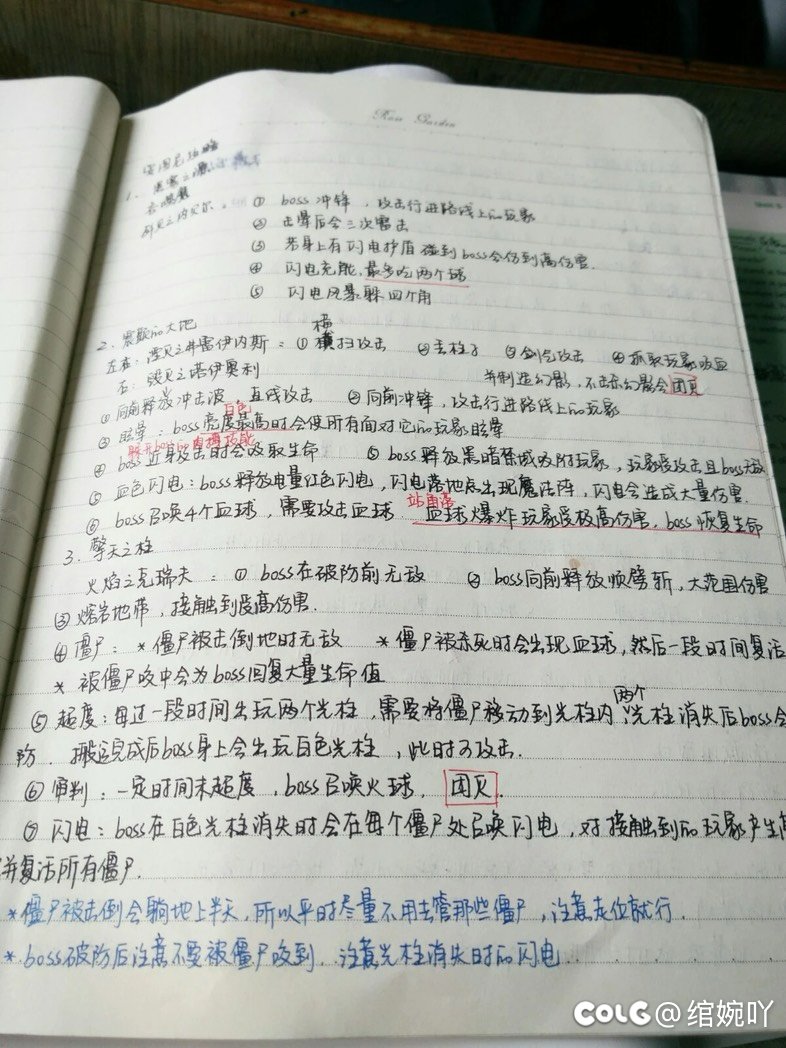 Rose Garden
安图恩攻略
1.
① boss冲锋，攻击行进路线上的玩家
② 击晕后会三次雷击
③ 若身上有闪电护盾碰到boss会伤到高伤害.
④ 闪电充能，最多吃两个球
⑤ 闪电风暴躲四个角
2. 震颤的大地
横
① 横扫攻击 ② 丢柱子 ③ 剑气攻击 ④ 抓取玩家吸血
并制造幻影，不击杀幻影会团灭
① 向前释放冲击波 直线攻击 ② 向前冲锋，攻击行进路线上的玩家
白色
③ 眩晕：boss亮度最高时会使所有面对它的玩家眩晕
④ boss近身攻击时会吸取生命 ⑤ boss释放黑暗禁域吸附玩家，玩家受攻击且boss无敌
⑤ 血色闪电：boss释放电量红色闪电，闪电落地点出现魔法阵，闪电会造成大量伤害.
⑥ boss召唤4个血球，需要攻击血球 血球爆炸玩家受极高伤害，boss恢复生命
3. 擎天之柱
① boss在破防前无敌 ② boss向前释放顺劈斩，大范围伤害
③ 熔岩地带，接触到受高伤害.
④ 僵尸：*僵尸被击倒地时无敌 *僵尸被杀死时会出现血球，然后一段时间复活
* 被僵尸咬中会为boss回复大量生命值
两个
⑤ 超度：每过一段时间出玩两个光柱，需要将僵尸移动到光柱内，光柱消失后boss会
防. 搬运完成后boss身上会出玩白色光柱，此时可攻击.
⑥ 审判：一定时间未超度，boss召唤火球，团灭.
⑦ 闪电：boss在白色光柱消失时会在每个僵尸处召唤闪电，对接触到的玩家产生高
并复活所有僵尸.
*僵尸被击倒会躺地上半天，所以平时尽量不用去管那些僵尸，注意走位就行.
*boss破防后注意不要被僵尸咬到. 注意光柱消失时的闪电
COLG@绾婉吖